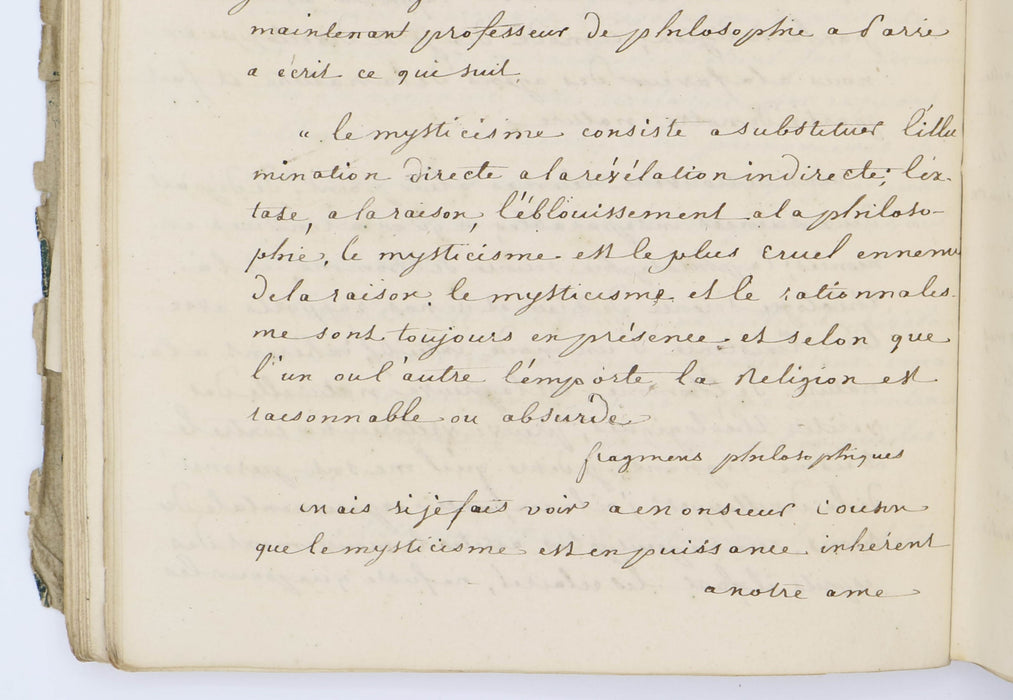 maintenant professeur de philosophie a Parris
a écrit ce qui suit
" le mysticisme consiste a substituer l'illu
mination directe a la révélation indirecte; l'ex-
tase, a la raison, l'éblouissement a la philoso-
phie, le mysticisme est le plus cruel ennemi
de la raison. le mysticisme et le rationnales-
me sont toujours en présence et selon que
l'un ou l'autre l'émporte la Religion est
raisonnable ou absurde
fragmens philosophiques
mais si je fais voir a monsieur cousin
que le mysticisme est en puissance inhérent
a notre ame